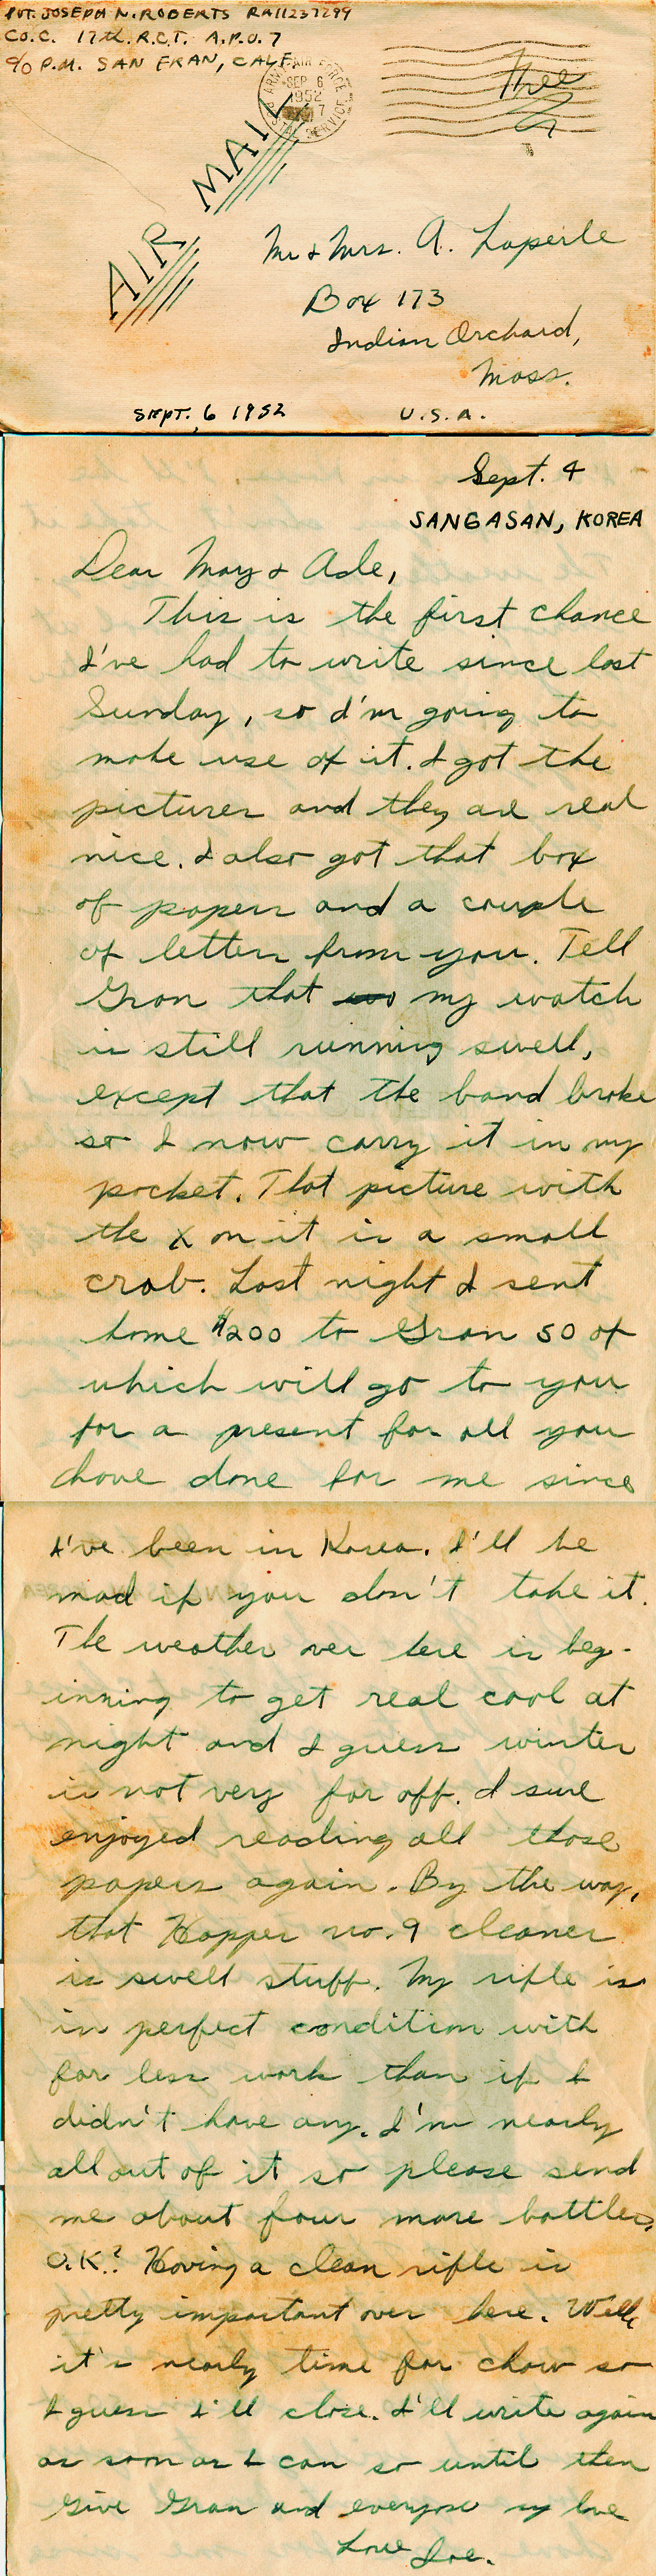 PVT. JOSEPH N. ROBERTS RA11237299
CO. C. 17th. R.C.T. A.P.O. 7
c/o P.M. SAN FRAN, CALF.
ARMY-AIR FORCE
SEP 6
1952
7
SERVICE
Free
AIR MAIL
Mr & Mrs. A. Laperle
Box 173
Indian Orchard,
Mass.
SEPT. 6 1952
U.S.A.
Sept. 4
SANGASAN, KOREA
Dear May & Ade,
This is the first chance
I've had to write since last
Sunday, so I'm going to
make use of it. I got the
pictures and they are real
nice. I also got that box
of papers and a couple
of letters from you. Tell
Gran that my watch
is still running swell,
except that the band broke
so I now carry it in my
pocket. That picture with
the X on it is a small
crab. Last night I sent
home $200 to Gran 50 of
which will go to you
for a present for all you
have done for me since
I've been in Korea. I'll be
mad if you don't take it.
The weather over here is beg-
inning to get real cool at
night and I guess winter
is not very far off. I sure
enjoyed reading all those
papers again. By the way,
that Hoppes no. 9 cleaner
is swell stuff. My rifle is
in perfect condition with
far less work than if I
didn't have any. I'm nearly
all out of it so please send
me about four more bottles,
O.K.? Having a clean rifle is
pretty important over here. Well,
it's nearly time for chow so
I guess I'll close. I'll write again
as soon as I can so until then
give Gran and everyone my love
Love Joe.